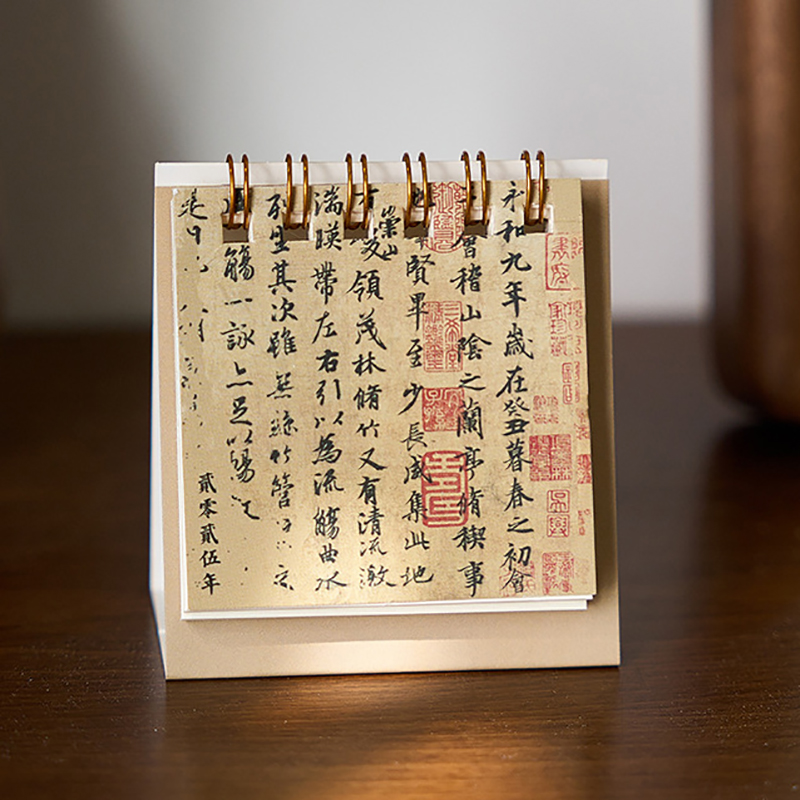 永和九年歲在癸丑暮春之初會
會稽山陰之蘭亭脩稧事
賢畢至少長咸集此地
有崇山領茂林脩竹又有清流激
湍暎帶左右引以為流觴曲水
列坐其次雖無絲竹管
觴一詠亦足以暢
是日
貳零貳伍年